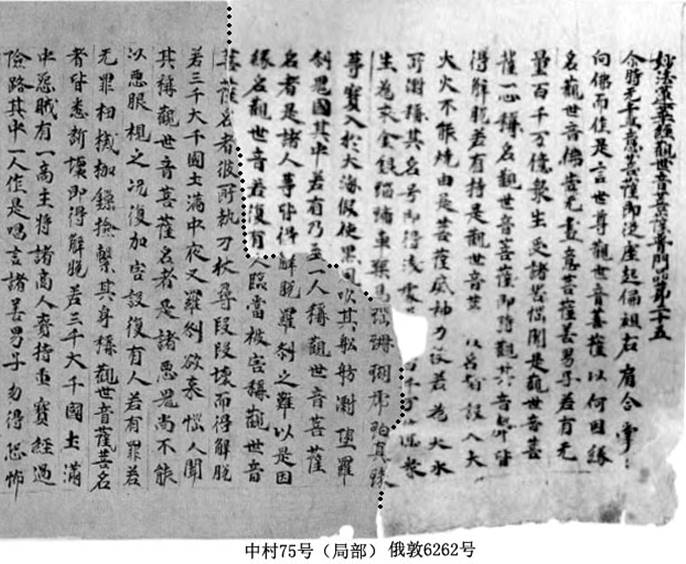 妙法蓮華經觀世音菩薩普門品第二十五
尒時无盡意菩薩即從座起偏袒右肩合掌
向佛而作是言世尊觀世音菩薩以何因緣
名觀世音佛告无盡意菩薩善男子若有无
量百千万億衆生受諸苦惱聞是觀世音菩
薩一心稱名觀世音菩薩即時觀其音聲皆
得解脫若有持是觀世音菩 名者設入大
火火不能燒由是菩薩威神力故若為大水
所漂稱其名号即得淺處 百千万億衆
生為求金銀瑠璃車璖馬瑙珊瑚虎珀真珠
等寶入於大海假使黑風吹其舩舫漂墮羅
剎鬼國其中若有乃至一人稱觀世音菩薩
名者是諸人等皆得解脫羅剎之難以是因
緣名觀世音若復有人臨當被害稱觀世音
菩薩名者彼所執刀杖尋段段壞而得解脫
若三千大千國土滿中夜叉羅剎欲來惱人聞
其稱觀世音菩薩名者是諸惡鬼尚不能
以惡眼視之況復加害設復有人若有罪若
无罪杻械枷鎖撿繫其身稱觀世音薩菩名
者皆悉斷壞即得解脫若三千大千國土滿
中惡賊有一商主將諸商人賫持重寶經過
險路其中一人作是唱言諸善男子勿得恐怖
中村75号（局部） 俄敦6262号